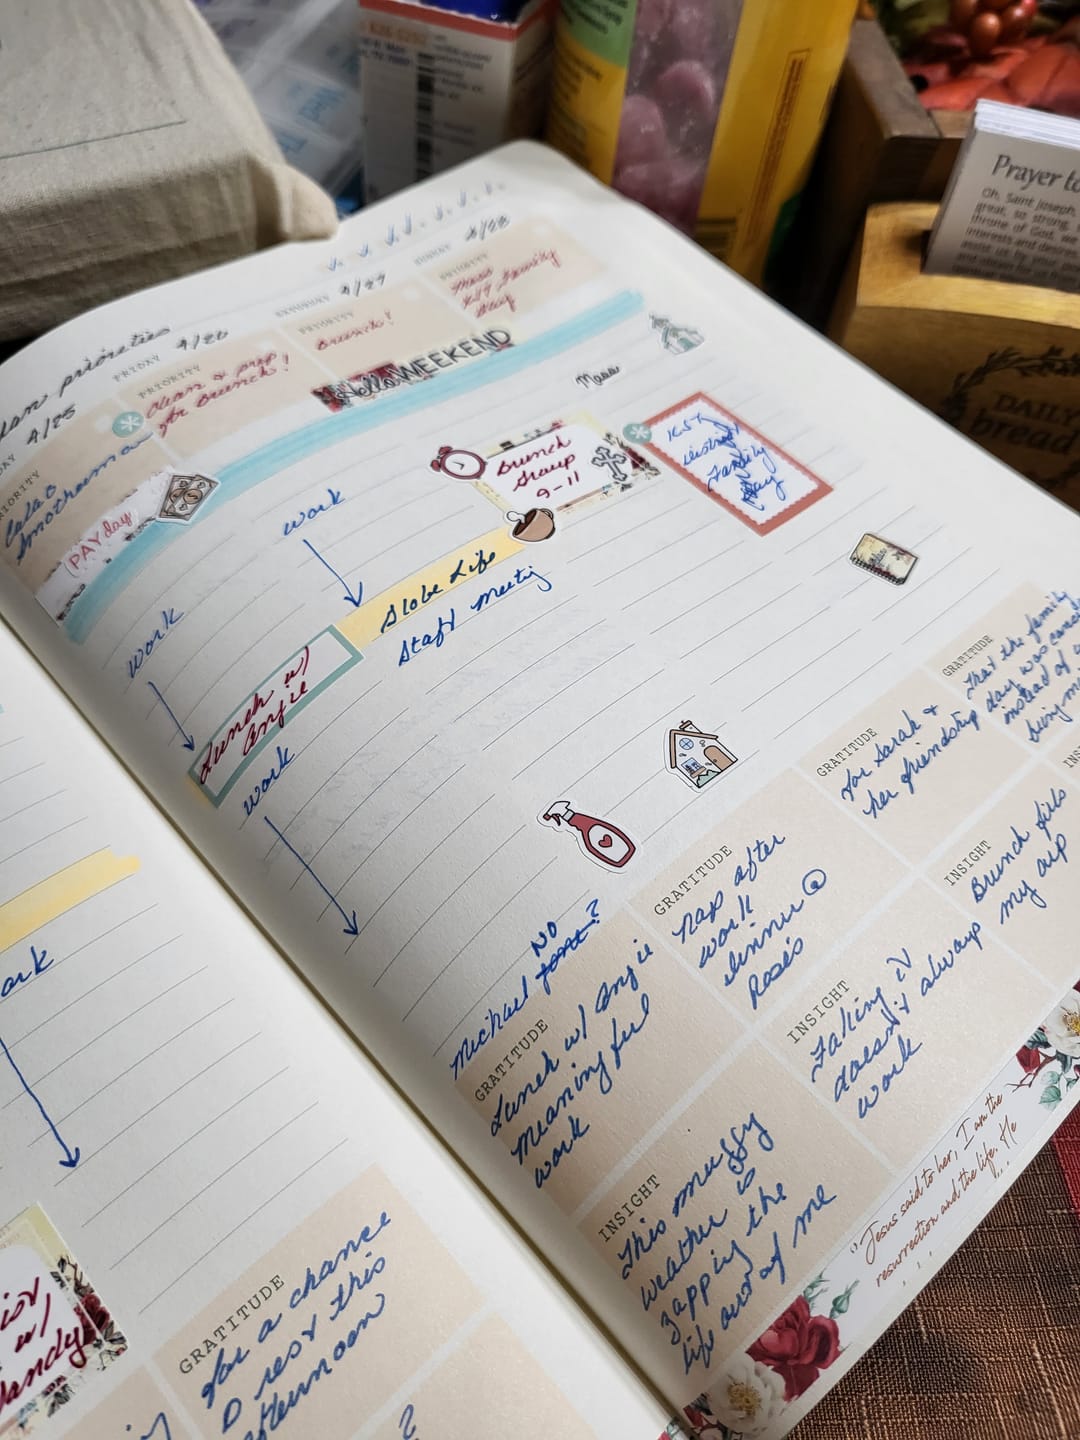 priorities
4/25
PRIORITY
PAY day
work
Lunch w/
Angie
work
Michael NO
FRIDAY 4/26
PRIORITY
clean & prep
for Brunch!
work
Globe Life
Staff Meeting
SATURDAY 4/27
PRIORITY
Brunch!
Hello WEEKEND
Brunch
Group
9-11
SUNDAY 4/28
PRIORITY
Mass
Family
Day
Mass
Family
Day
GRATITUDE
Lunch w/ Angie
meaningful
work
GRATITUDE
nap after
work
dinner @
Rose's
GRATITUDE
for Sarah &
her friendship
GRATITUDE
that the family
day was
instead of
being
INSIGHT
This muggy
weather is
zapping the
life out of me
INSIGHT
Faking it
doesn't always
work
INSIGHT
Brunch fills
my cup
INS
"Jesus said to her, I am the
resurrection and the life. He
ork
w/
GRATITUDE
for a chance
rest this
afternoon
?
Prayer to
Oh, Saint Joseph,
great, so strong,
throne of God, we
DAILY
bread